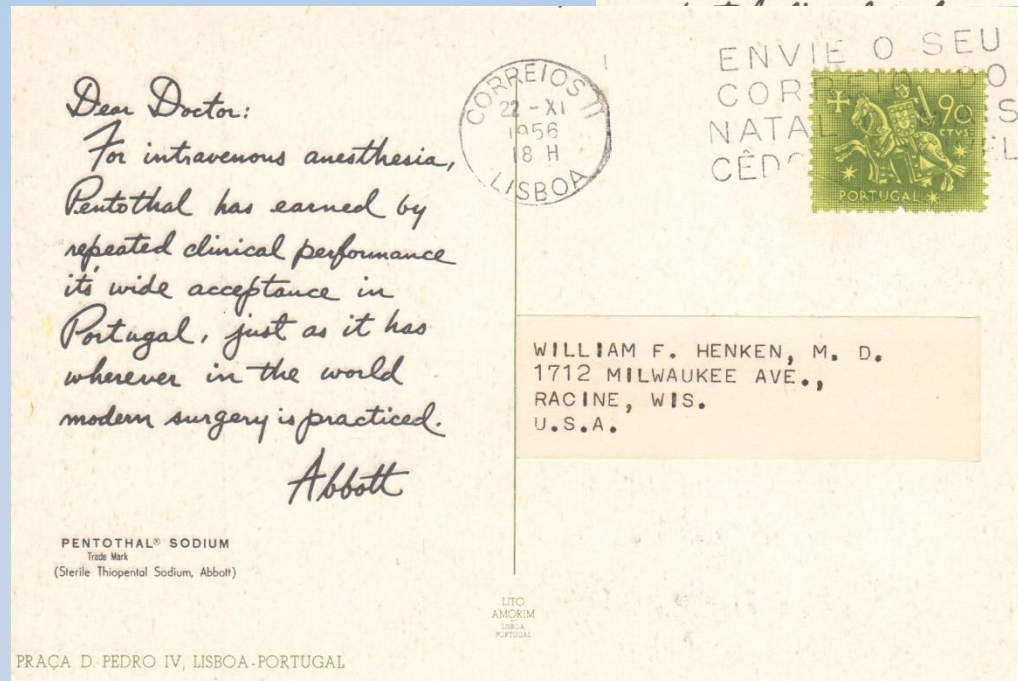 Dear Doctor:
For intravenous anesthesia,
Pentothal has earned by
repeated clinical performance
its wide acceptance in
Portugal, just as it has
wherever in the world
modern surgery is practiced.
Abbott
PENTOTHAL® SODIUM
Trade Mark
(Sterile Thiopental Sodium, Abbott)
PRAÇA D. PEDRO IV, LISBOA-PORTUGAL
LITO
AMORIM
LISBOA
PORTUGAL
CORREIOS
22-XI
1956
18 H
LISBOA
ENVIE O SEU
NATAL
90
CTVS
PORTUGAL
WILLIAM F. HENKEN, M. D.
1712 MILWAUKEE AVE.,
RACINE, WIS.
U.S.A.